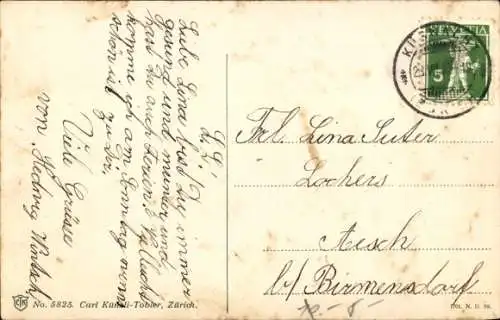 L. L.
Liebe Lina bist Du immer
gesund und munter und
hast Du auch Ferien. Vielleicht
komme ich am Sonntag wenn
schön ist zu Dir.
Viele Grüsse
von Hedwig
No. 5825. Carl Künzli-Tobler, Zürich.
HELVETIA
5
Frl. Lina Suter
Lochers
Aesch
b/ Birmensdorf